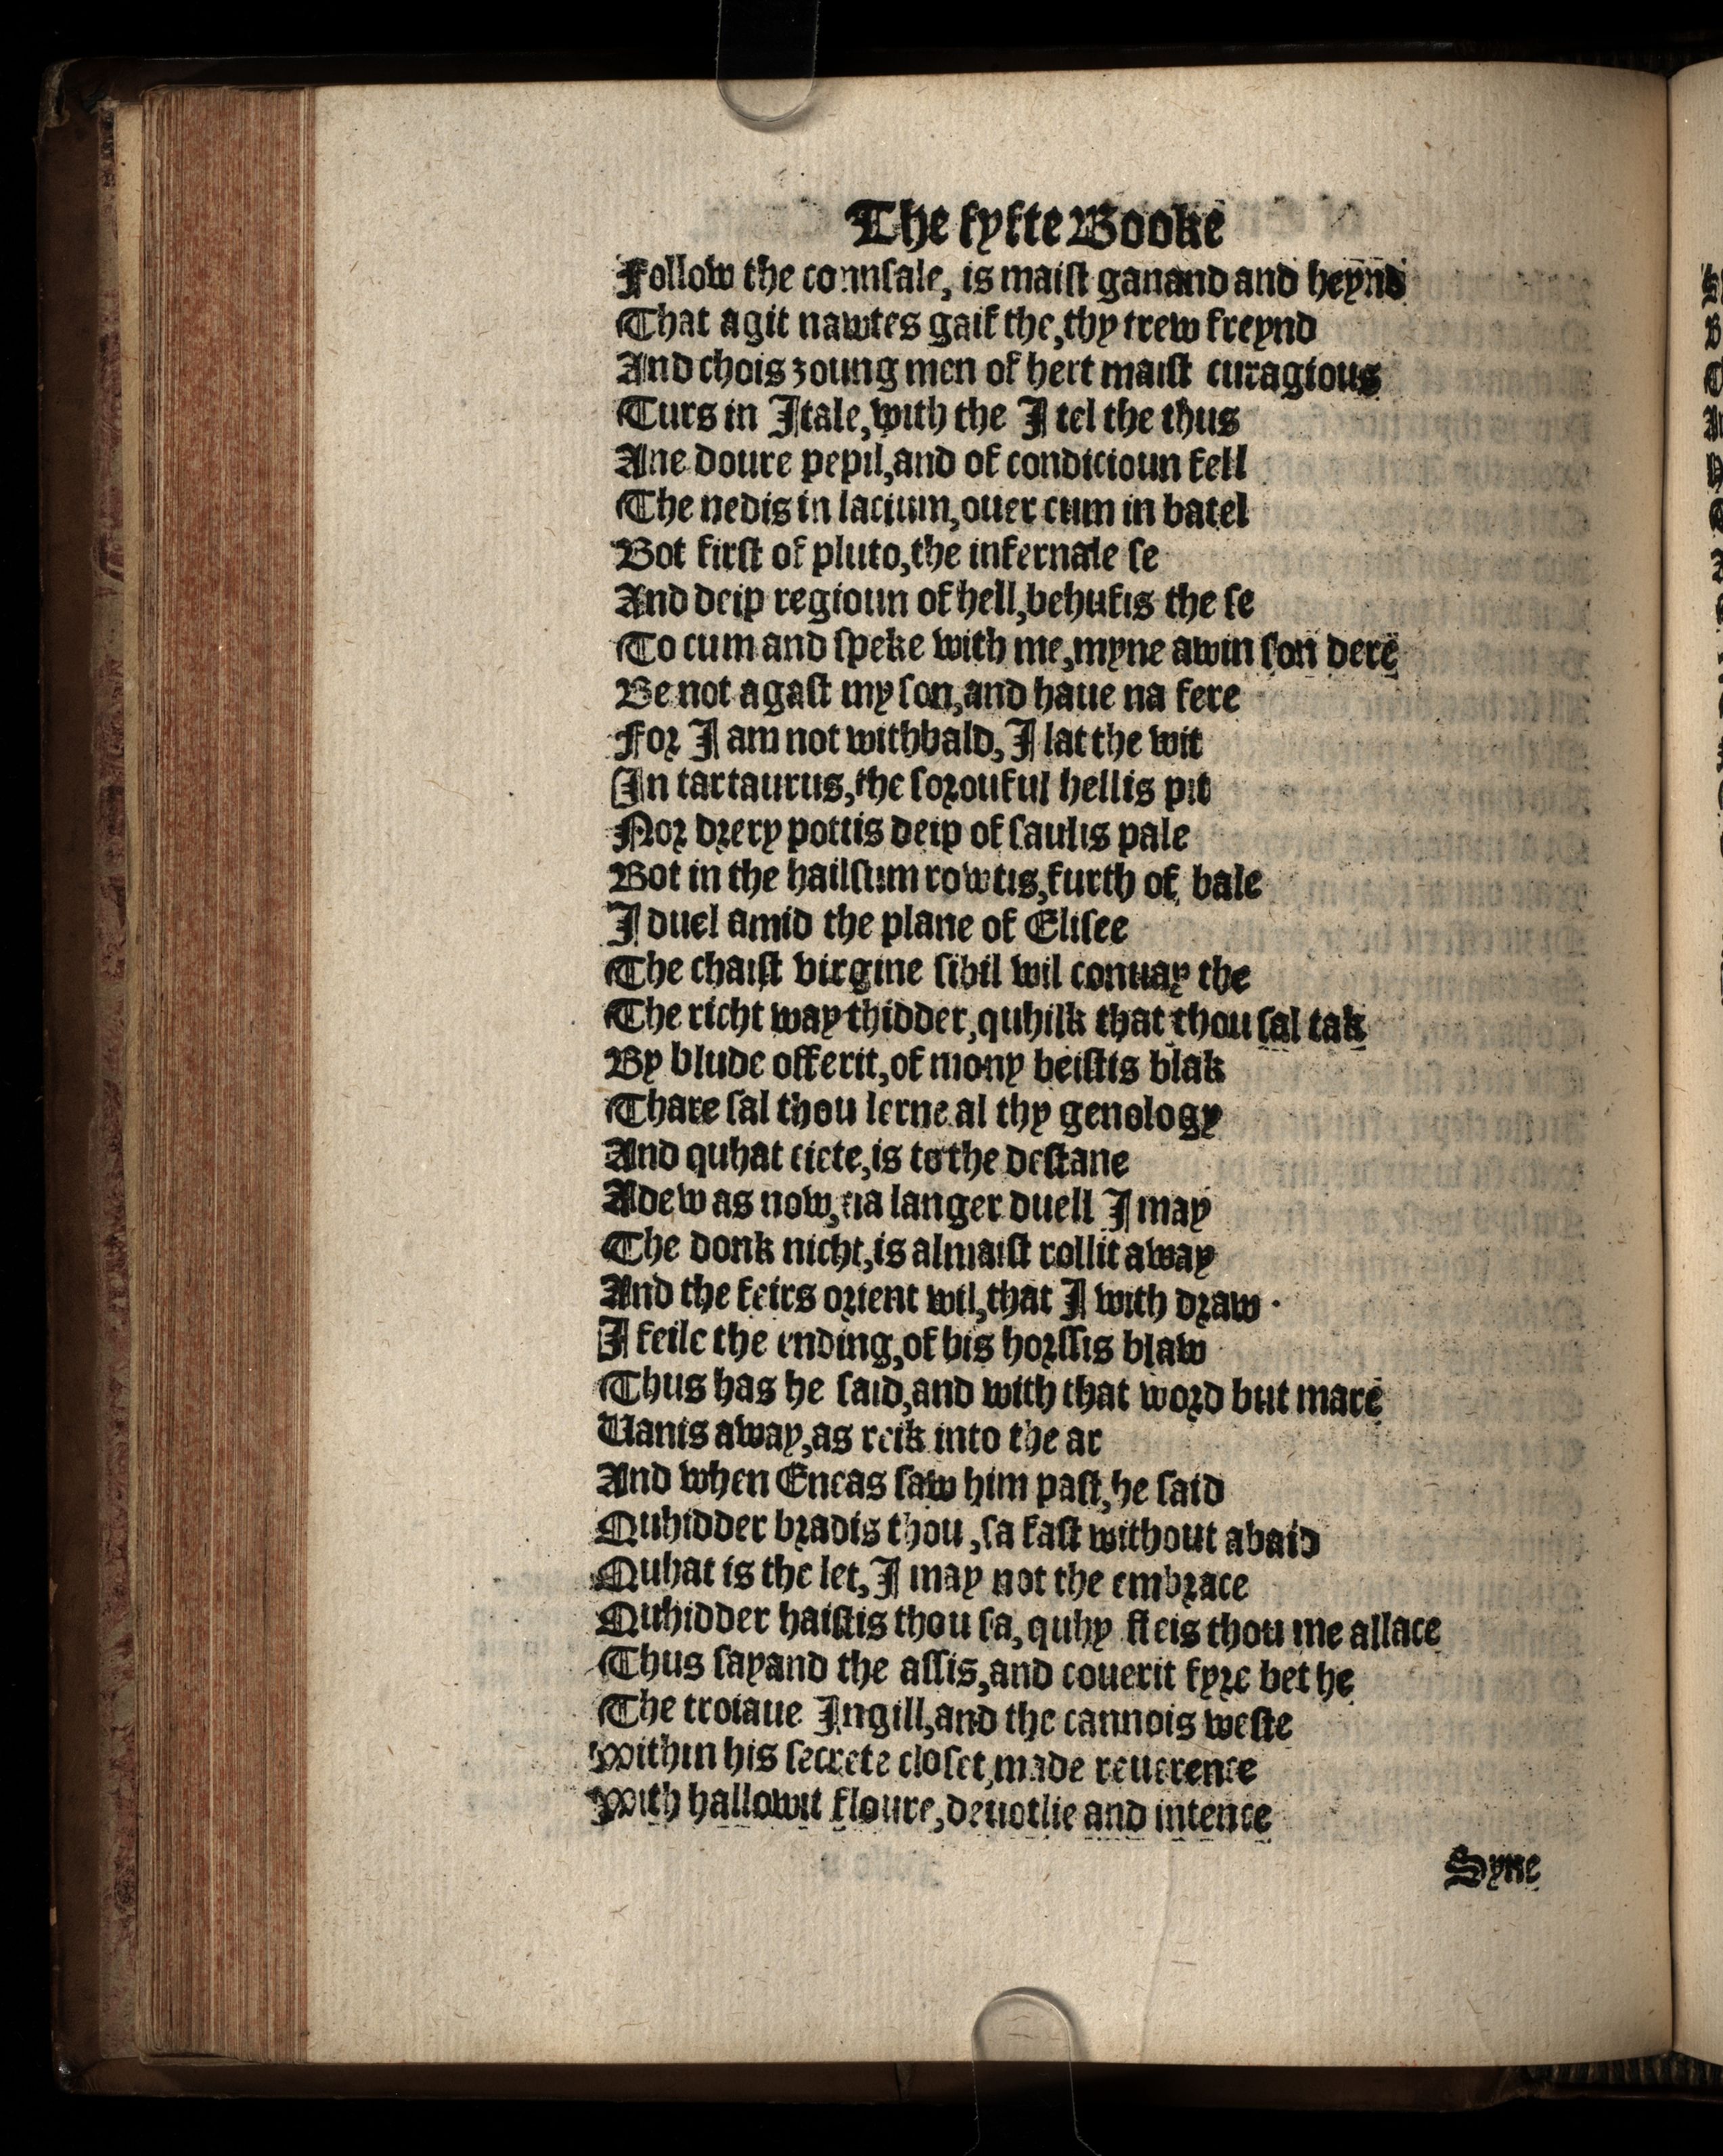 The fyfte Booke
Follow the connsale, is maiſt ganand and heynd
That agit nawtes gaif the, thy trew freynd
And chois ȝoung men of hert maiſt curagious
Turs in Itale, with the I tel the thus
Ane doure pepil, and of condicioun fell
The nedis in lacium, ouer cum in batel
Bot firſt of pluto, the infernale ſe
And deip regioun of hell, behufis the ſe
To cum and ſpeke with me, myne awin ſon dere
Be not agaſt my ſon, and haue na fere
For I am not withhald, I lat the wit
In tartaurus, the ſorouful hellis pit
Nor drery pottis deip of ſaulis pale
Bot in the hailſum rowtis, furth of bale
I duel amid the plane of Eliſee
The chaiſt virgine ſibil wil conuay the
The richt way thidder, quhilk that thou ſal tak
By blude offerit, of mony beiſtis blak
Thare ſal thou lerne al thy genology
And quhat ciete, is to the deſtane
Adew as now, na langer duell I may
The donk nicht, is almaiſt rollit away
And the feirs orient wil, that I with draw
I feile the ending, of his horſſis blaw
Thus has he ſaid, and with that word but mare
Uanis away, as reik into the ar
And when Eneas ſaw him paſt, he ſaid
Quhidder bradis thou, ſa faſt without abaid
Quhat is the let, I may not the embrace
Quhidder haiſtis thou ſa, quhy fleis thou me allace
Thus ſayand the aſſis, and couerit fyre bet he
The troiaue Ingill, and the cannois weſte
Within his ſecrete cloſet, made reuerence
With hallowit floure, deuotlie and intence
Syne